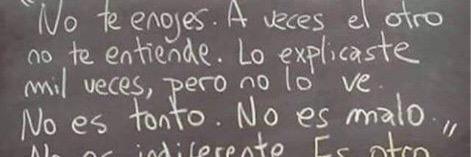 "No te enojes. A veces el otro
no te entiende. Lo explicaste
mil veces, pero no lo ve.
No es tonto. No es malo.,,
No es indiferente. Es otro